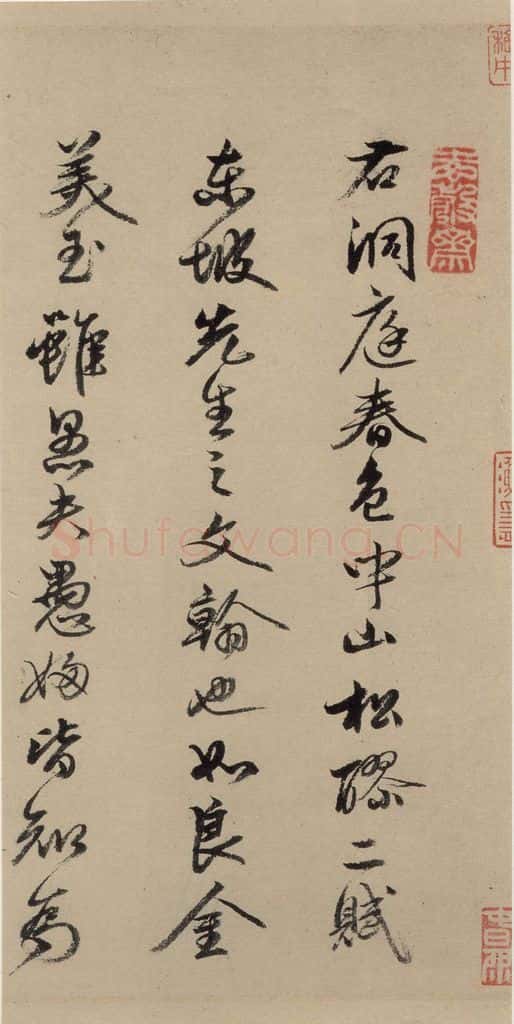 右洞庭春色中山松醪二賦
東坡先生之文翰也如良金
美玉雖愚夫愚婦皆知為
Shufawang.CN